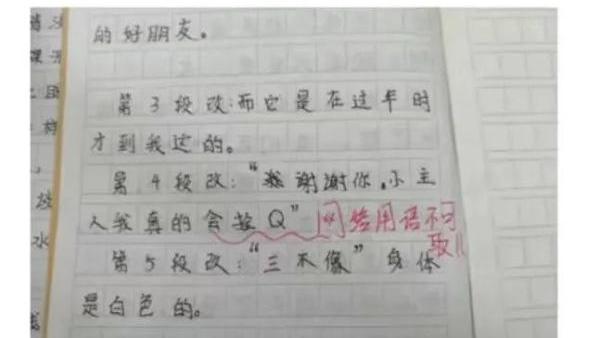 的好朋友。
第3段改:而它是在过年时
才到我这的。
第4段改:“谢谢你,小主
人我真的会按Q” 网络用语不可
取!!
第5段改:“三不像”身体
是白色的。
水